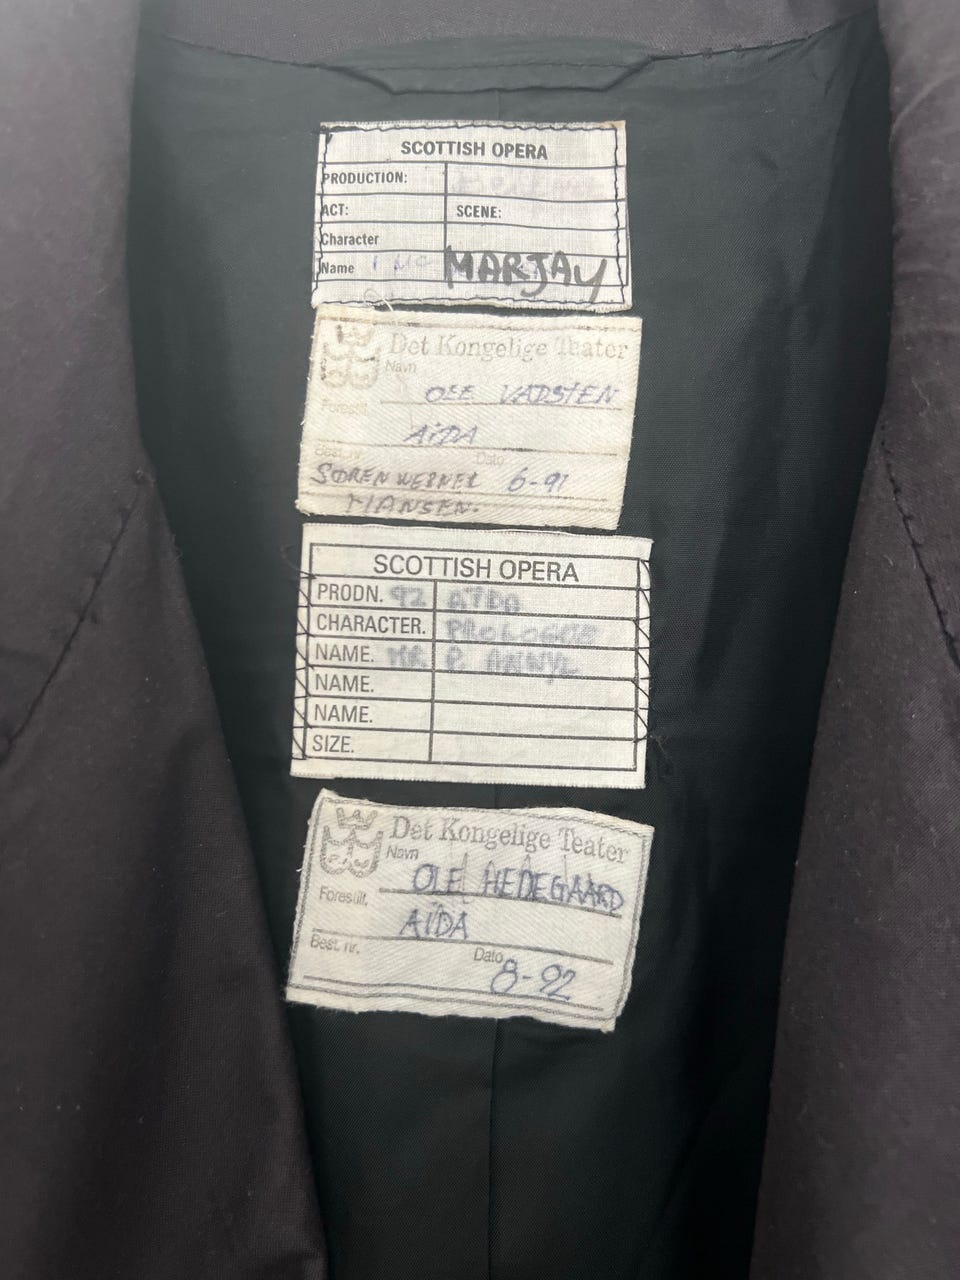 SCOTTISH OPERA
PRODUCTION:
ACT: SCENE:
Character
Name MARJAY
Det Kongelige Teater
Navn
OLE VADSTEN
Forestill.
AIDA
Best. nr. Dato
SØREN WERNER 6-91
HANSEN.
SCOTTISH OPERA
PRODN. 92 AIDA
CHARACTER. PROLOGUE
NAME. MR P.
NAME.
NAME.
SIZE.
Det Kongelige Teater
Navn
OLE HEDEGAARD
Forestill.
AÏDA
Best. nr. Dato
8-92